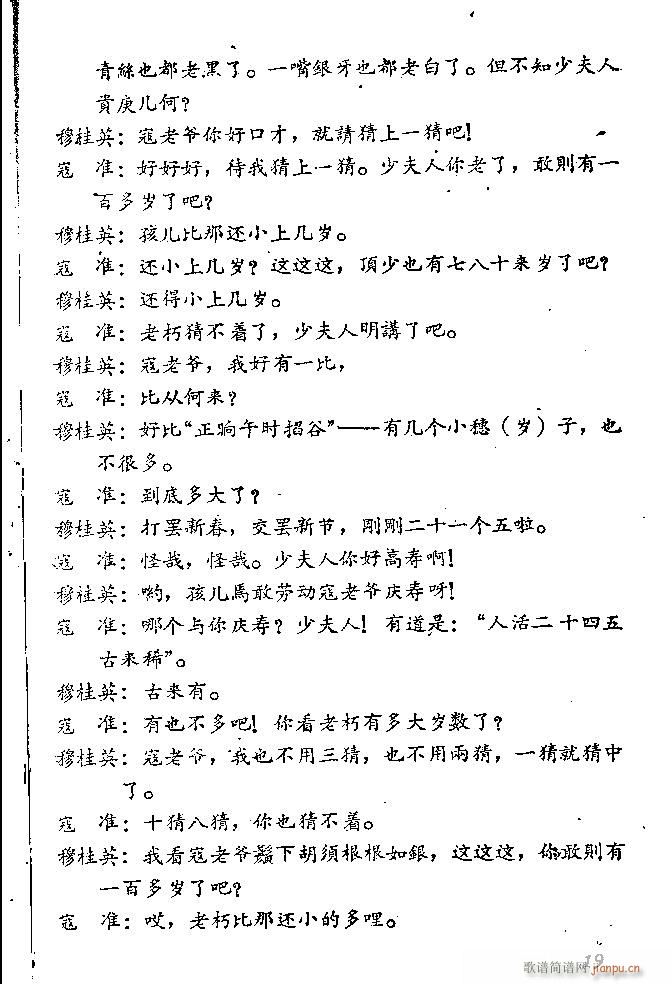 青絲也都老黑了。一嘴銀牙也都老白了。但不知少夫人
貴庚几何？
穆桂英：寇老爷你好口才，就請猜上一猜吧！
寇　准：好好好，待我猜上一猜。少夫人你老了，敢則有一
百多岁了吧？
穆桂英：孩儿比那还小上几岁。
寇　准：还小上几岁？这这这，頂少也有七八十来岁了吧？
穆桂英：还得小上几岁。
寇　准：老朽猜不着了，少夫人明講了吧。
穆桂英：寇老爷，我好有一比，
寇　准：比从何来？
穆桂英：好比“正晌午时掐谷”——有几个小穗（岁）子，也
不很多。
寇　准：到底多大了？
穆桂英：打罢新春，交罢新节，剛剛二十一个五啦。
寇　准：怪哉，怪哉。少夫人你好高寿啊！
穆桂英：哟，孩儿馬敢劳动寇老爷庆寿呀！
寇　准：哪个与你庆寿？少夫人！有道是：“人活二十四五
古来稀”。
穆桂英：古来有。
寇　准：有也不多吧！你看老朽有多大岁数了？
穆桂英：寇老爷，我也不用三猜，也不用兩猜，一猜就猜中
了。
寇　准：十猜八猜，你也猜不着。
穆桂英：我看寇老爷鬍下胡須根根如銀，这这这，你敢則有
一百多岁了吧？
寇　准：哎，老朽比那还小的多哩。
19
歌谱简谱网
jianpu.cn